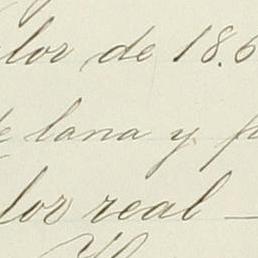 lor de 18.6
de lana y p
lor real —